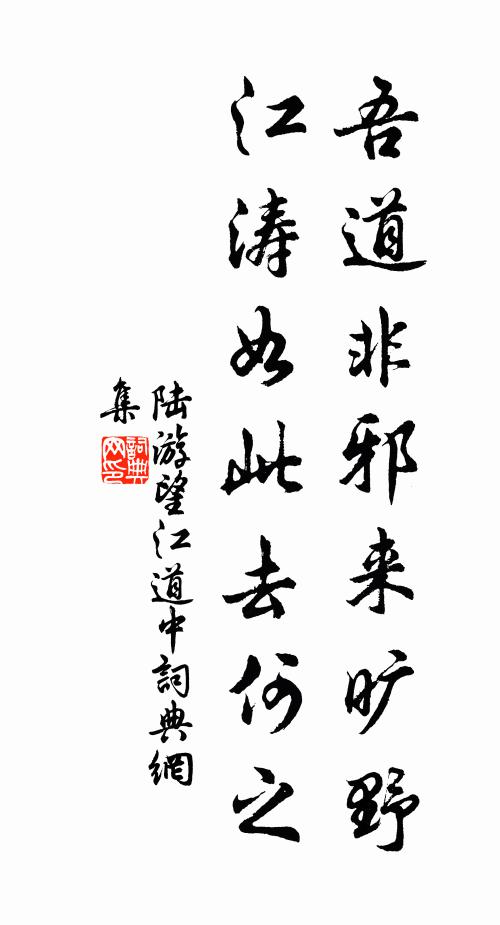 吾道非邪来旷野
江涛如此去何之
陆游望江道中詞典網
集
詞典
网印